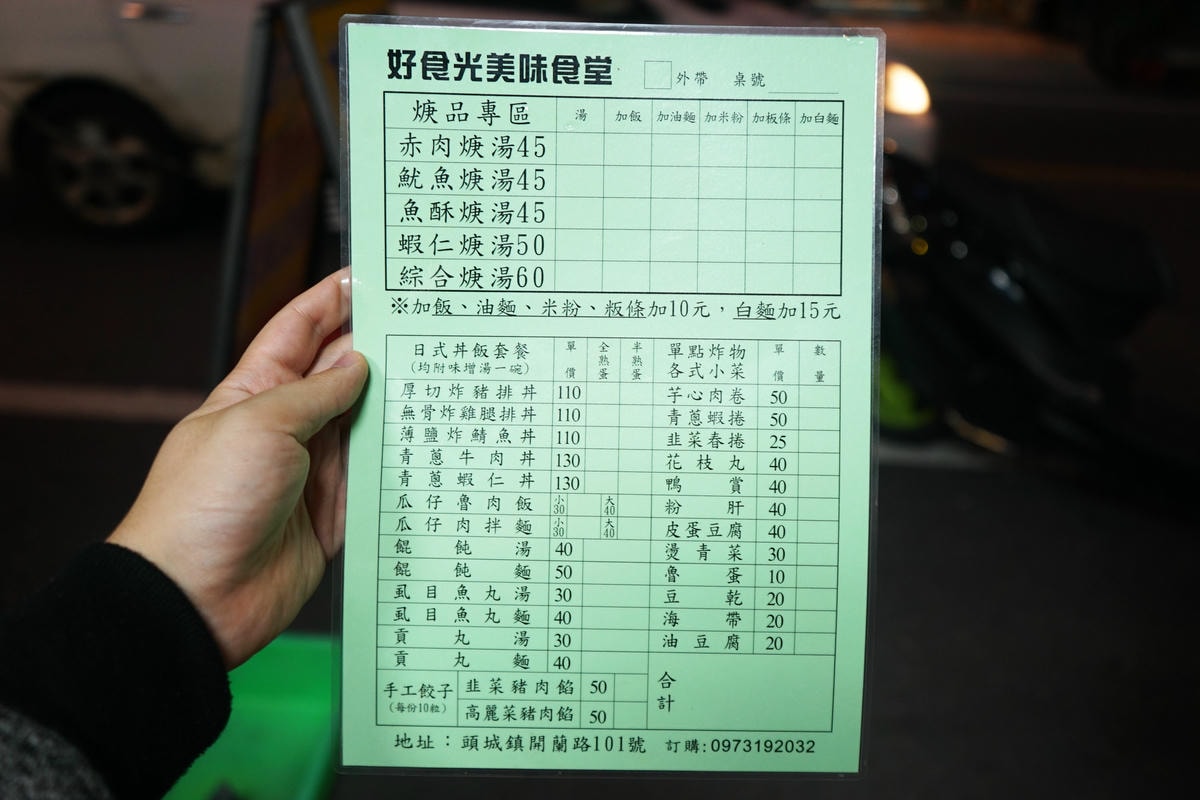 好食光美味食堂 外帶 桌號
焿品專區 湯 加飯 加油麵 加米粉 加板條 加白麵
赤肉焿湯45
魷魚焿湯45
魚酥焿湯45
蝦仁焿湯50
綜合焿湯60
※加飯、油麵、米粉、粄條加10元，白麵加15元
日式丼飯套餐 單價 全熟蛋 半熟蛋 單點炸物 單價 數量
(均附味增湯一碗) 各式小菜
厚切炸豬排丼 110 芋心肉卷 50
無骨炸雞腿排丼 110 青蔥蝦捲 50
薄鹽炸鯖魚丼 110 韭菜春捲 25
青蔥牛肉丼 130 花枝丸 40
青蔥蝦仁丼 130 鴨賞 40
瓜仔魯肉飯 小30 大40 粉肝 40
瓜仔肉拌麵 小30 大40 皮蛋豆腐 40
餛飩湯 40 燙青菜 30
餛飩麵 50 魯蛋 10
虱目魚丸湯 30 豆乾 20
虱目魚丸麵 40 海帶 20
貢丸湯 30 油豆腐 20
貢丸麵 40 合計
手工餃子 韭菜豬肉餡 50
(每份10粒) 高麗菜豬肉餡 50
地址：頭城鎮開蘭路101號 訂購:0973192032